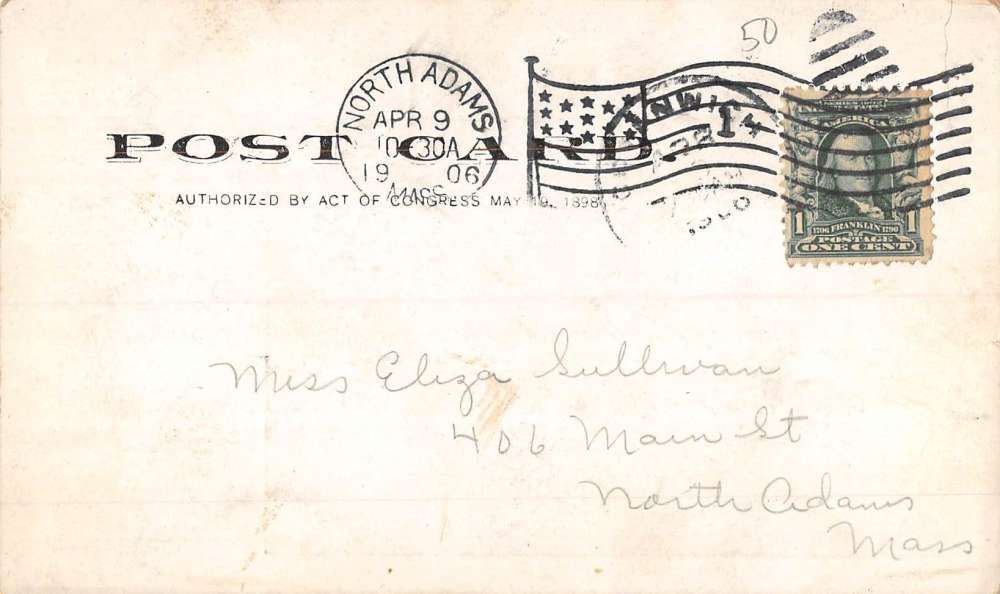 50
POST CARD
AUTHORIZED BY ACT OF CONGRESS MAY 19, 1898
NORTH ADAMS
APR 9
10-30A
19 06
MASS
1
AMERICA
1706 FRANKLIN 1790
POSTAGE
1 ONE CENT 1
Miss Eliza Sullivan
406 Main St
North Adams
Mass